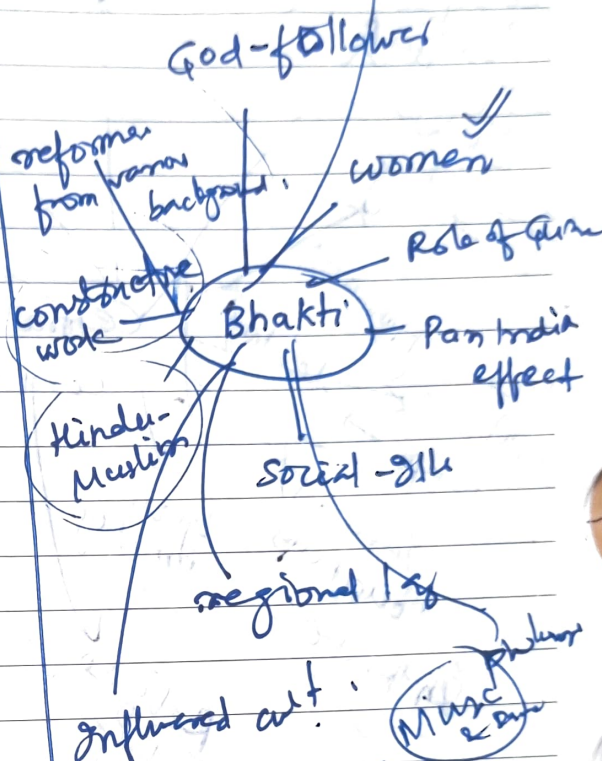 God-follower
women
reformer
from various
background.
Role of Guru
constructive
work
Bhakti
Pan India
effect
Hindu-
Muslim
Social -
regional
Influenced cult.
Music
&